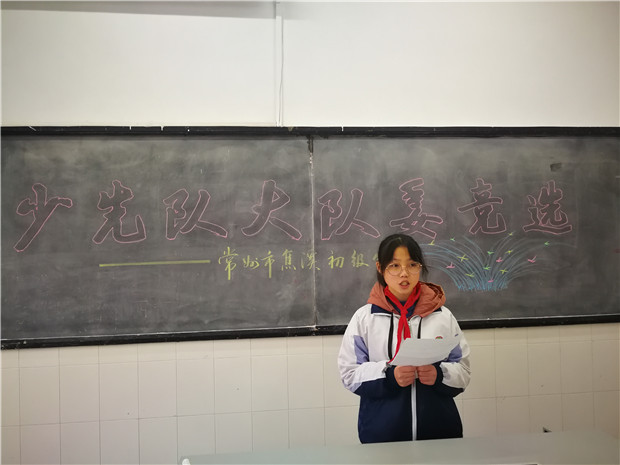 少先队大队委竞选
————常州市焦溪初级